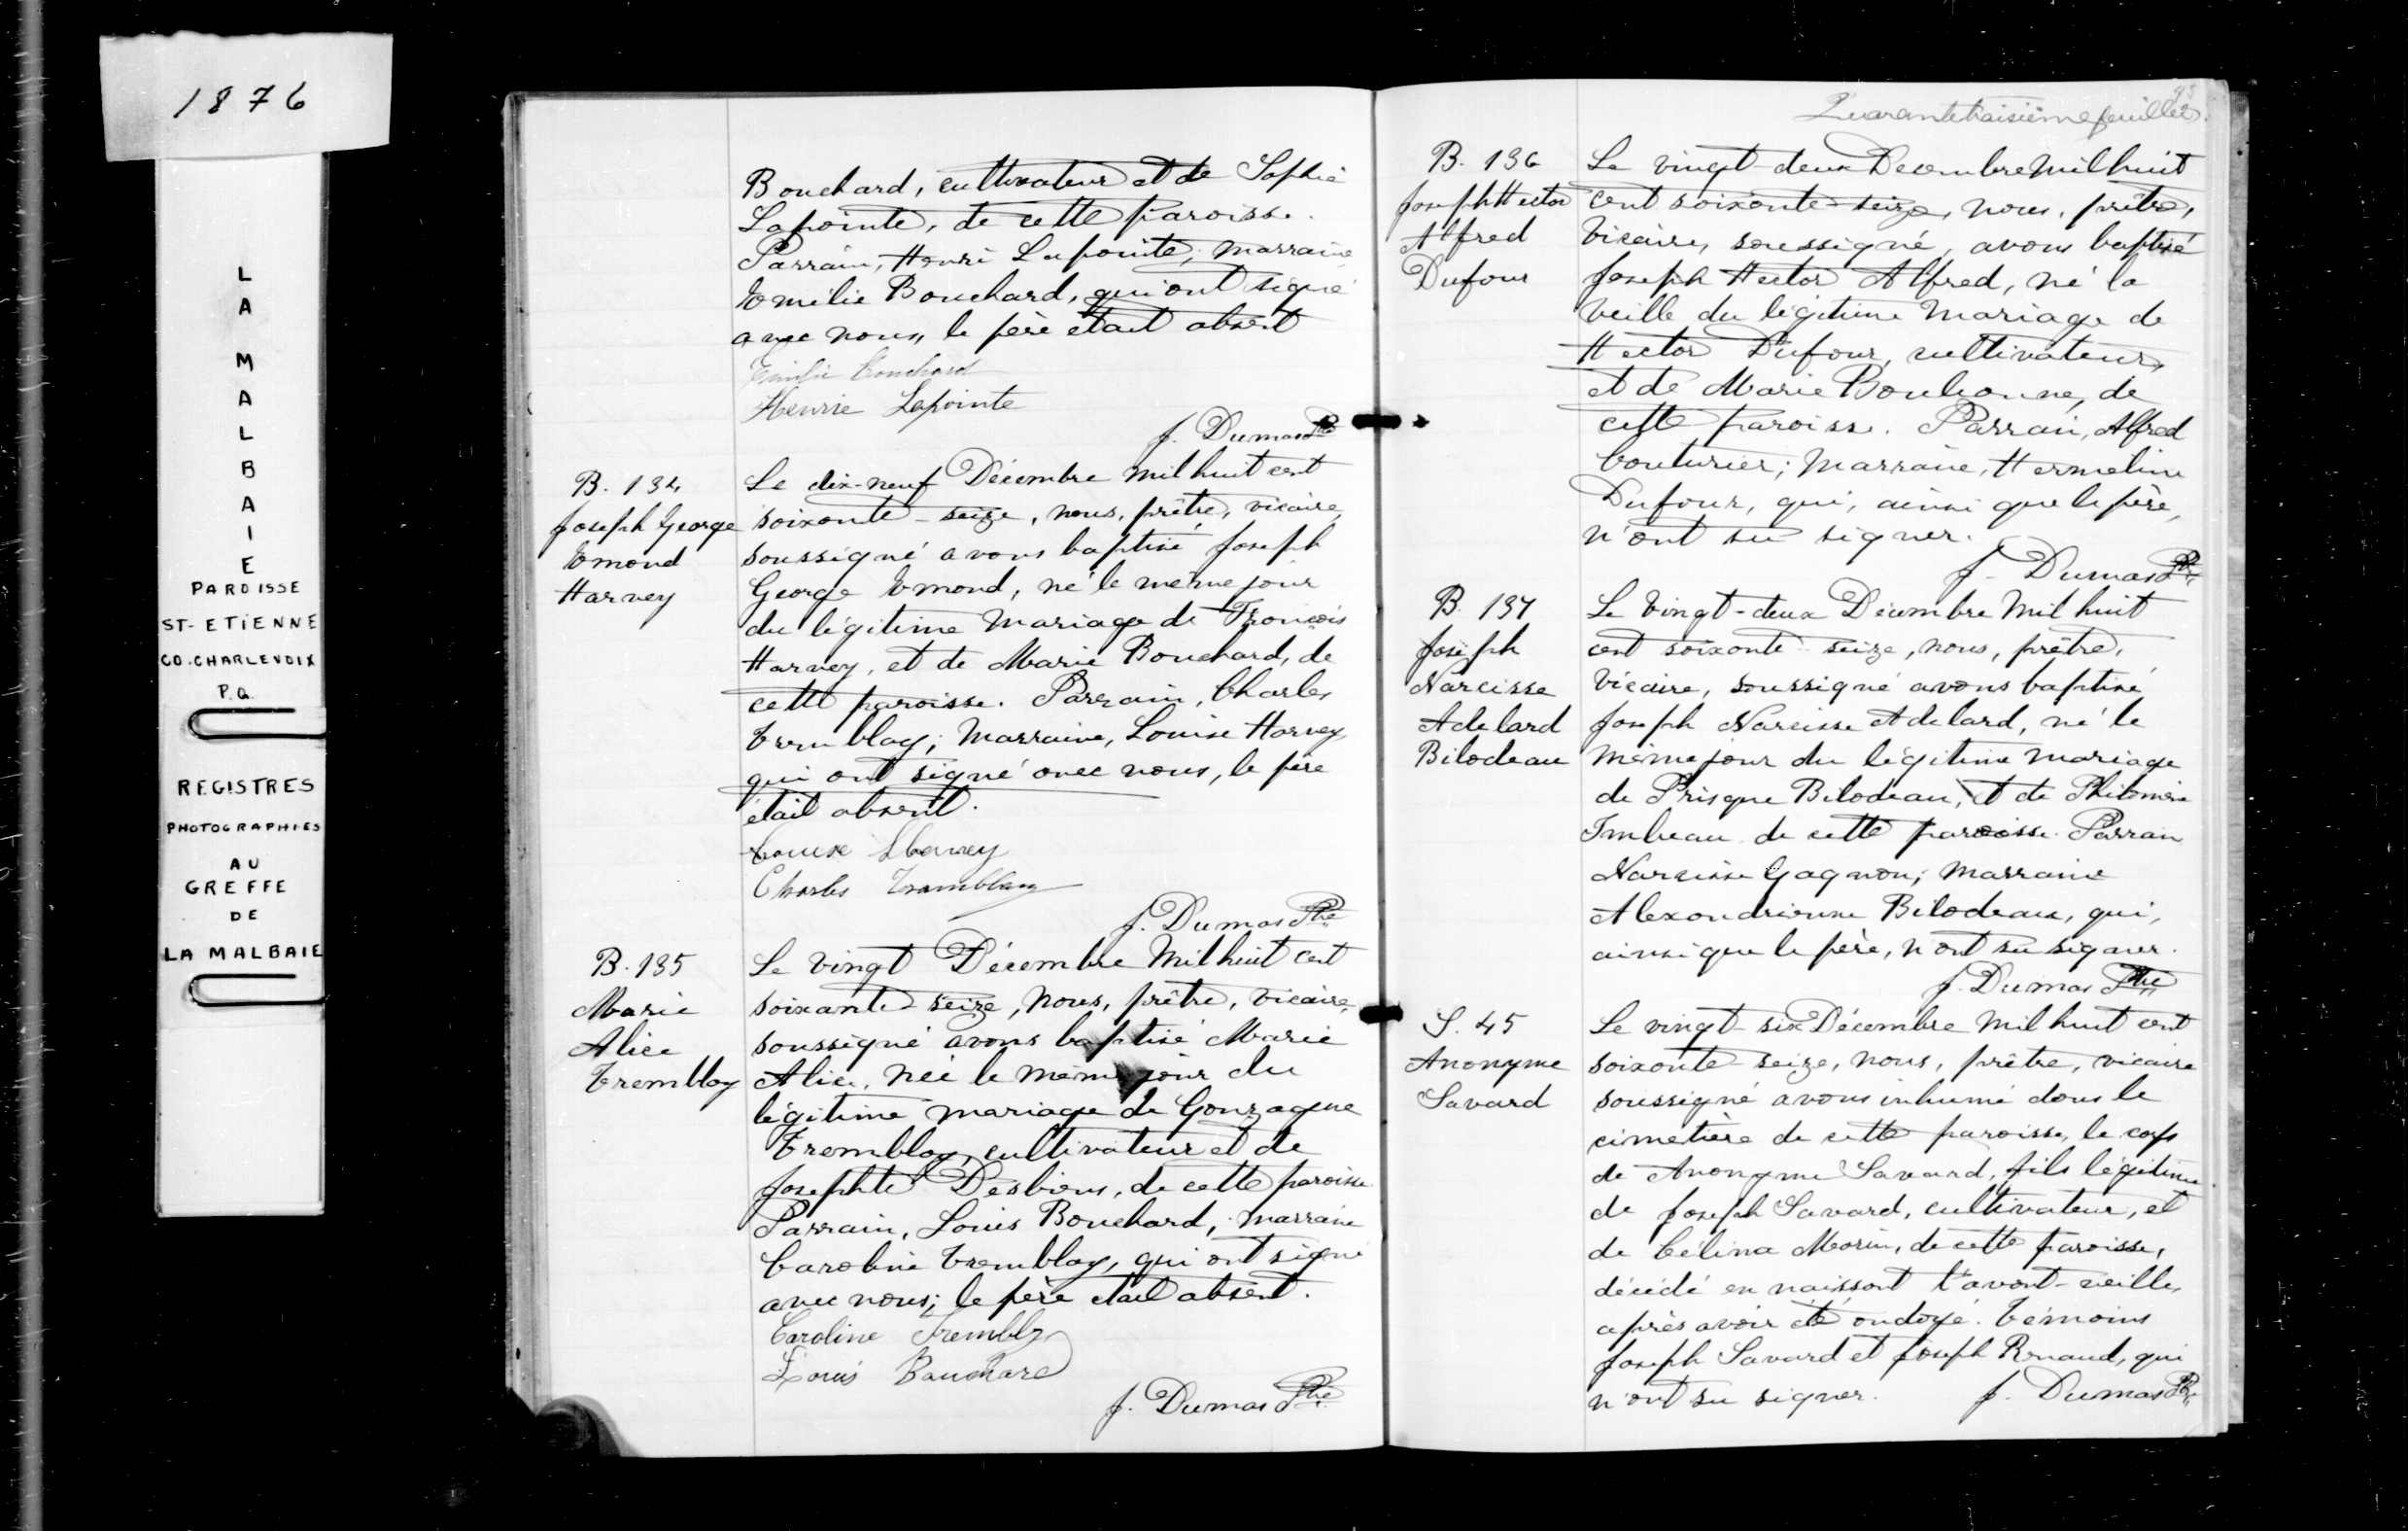 1876
LA MALBAIE
PAROISSE
ST-ETIENNE
CO. CHARLEVOIX
P.Q.
REGISTRES
PHOTOGRAPHIES
AU
GREFFE
DE
LA MALBAIE
Bouchard, cultivateur et de Sophie
Lapointe, de cette paroisse.
Parrain, Henri Lapointe; marraine
Emilie Bouchard, qui ont signé
avec nous, le père était absent
Emilie Bouchard
Henrie Lapointe
J. Dumas Ptre
B. 134
Joseph George
Emond
Harvey
Le dix-neuf Décembre mil huit cent
soixante-seize, nous, prêtre, vicaire,
soussigné avons baptisé Joseph
George Emond, né le même jour
du légitime mariage de François
Harvey, et de Marie Bouchard, de
cette paroisse. Parrain, Charles
Tremblay; Marraine, Louise Harvey
qui ont signé avec nous, le père
était absent.
Louise Harvey
Charles Tramblay
J. Dumas Ptre
B. 135
Marie
Alice
Tremblay
Le vingt Décembre Mil huit cent
soixante seize, nous, prêtre, vicaire,
soussigné avons baptisé Marie
Alice, née le même jour du
légitime mariage de Gonzague
Tremblay, cultivateur et de
Josephte Desbiens, de cette paroisse
Parrain, Louis Bouchard, marraine
Caroline Tremblay, qui ont signé
avec nous; le père était absent.
Caroline Trembly
Louis Bouchard
J. Dumas Ptre
43
Quarante troisième feuillet.
B. 136
Joseph Hector
Alfred
Dufour
Le vingt-deux Decembre Mil huit
cent soixante-seize, nous, prêtre,
Vicaire, soussigné, avons baptisé
Joseph Hector Alfred, né la
veille du légitime Mariage de
Hector Dufour, cultivateur,
et de Marie Boulionne, de
cette paroisse. Parrain, Alfred
Couturier; Marraine, Hermeline
Dufour, qui, ainsi que le père,
n'ont su signer.
J. Dumas Ptre
B. 137
Joseph
Narcisse
Adelard
Bilodeau
Le Vingt-deux Décembre Mil huit
cent soixante-seize, nous, prêtre,
Vicaire, soussigné avons baptisé
Joseph Narcisse Adelard, né le
même jour du légitime mariage
de Prisque Bilodeau, et de Philomène
Imbeau de cette paroisse. Parrain
Narcisse Gagnon; marraine
Alexandrienne Bilodeau, qui,
ainsi que le père, n'ont su signer.
J. Dumas Ptre
S. 45
Anonyme
Savard
Le vingt-six Décembre Mil huit cent
soixante seize, nous, prêtre, vicaire
soussigné avons inhumé dans le
cimetière de cette paroisse, le corps
de Anonyme Savard, fils légitime
de Joseph Savard, cultivateur, et
de Célina Morin, de cette paroisse,
décédé en naissant l'avant-veille,
après avoir été ondoyé. Témoins
Joseph Savard et Joseph Renaud, qui
n'ont su signer. J. Dumas Ptre